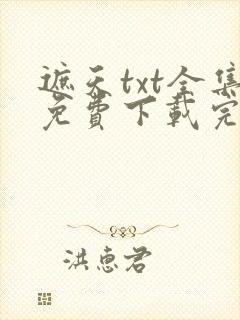 遮天txt全集
免費下載完
洪惠君